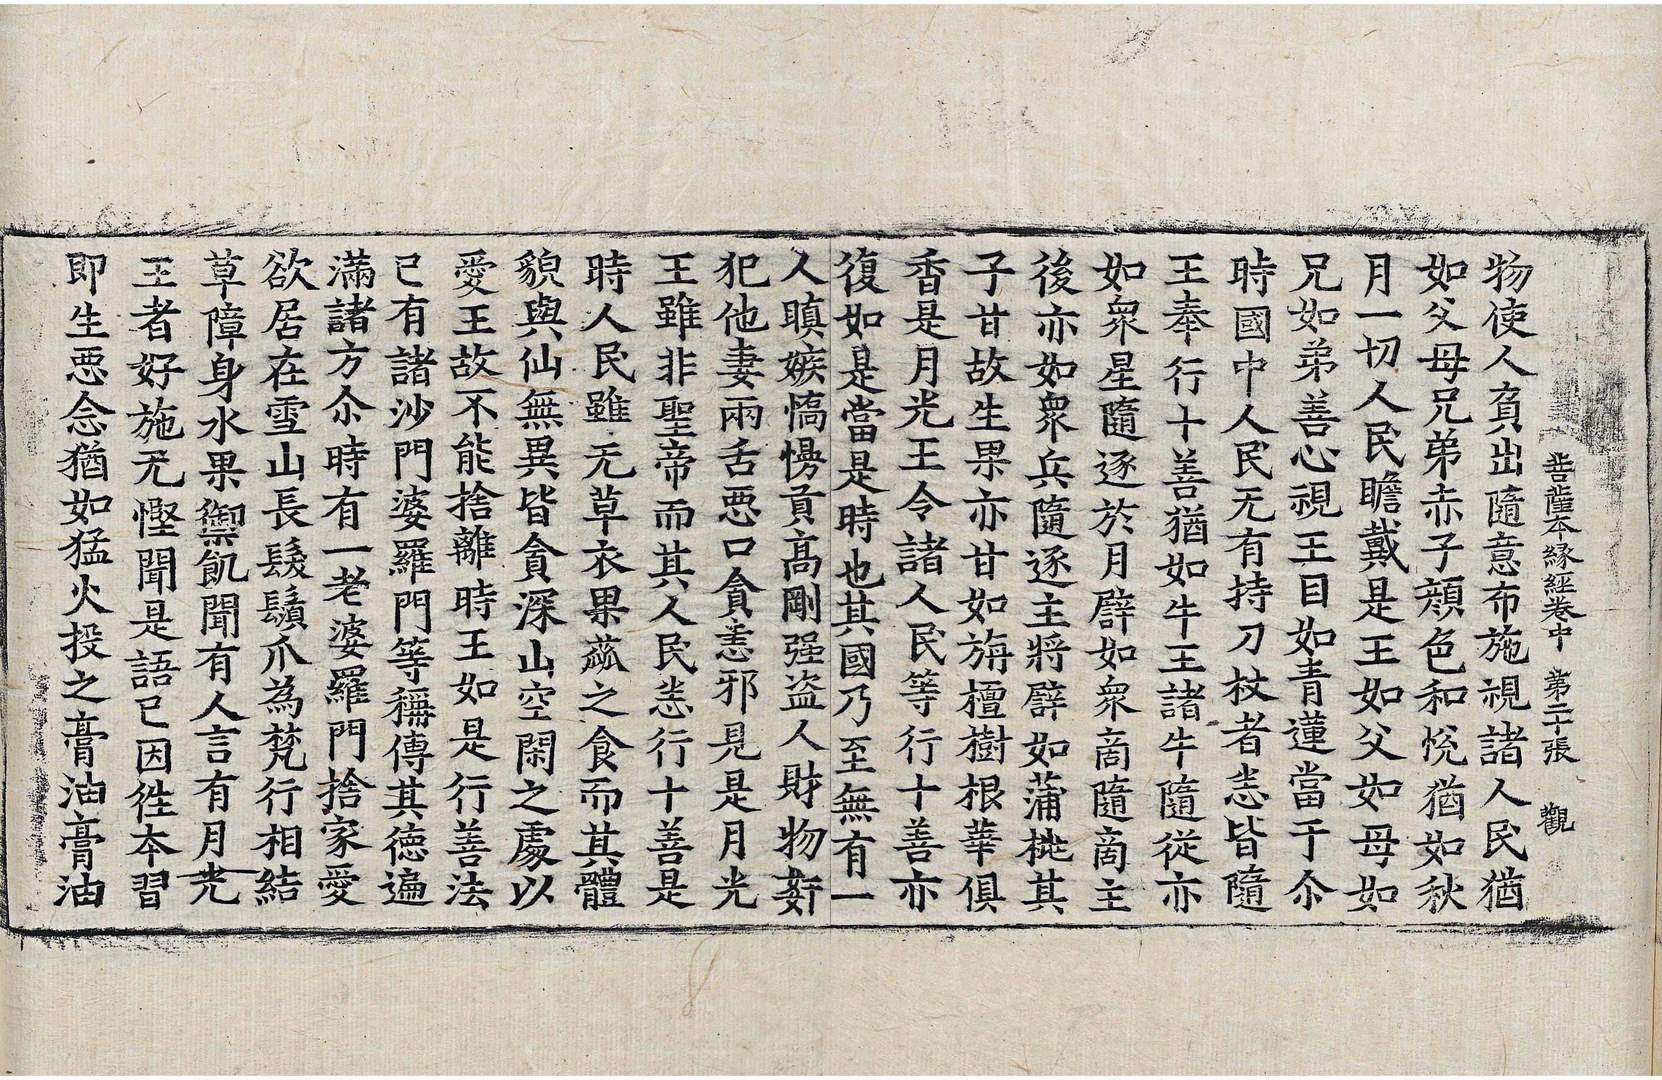 菩薩本緣經卷中 第二十張 觀
物使人負出隨意布施視諸人民猶
如父母兄弟赤子顔色和恱猶如秋
月一切人民瞻戴是王如父如母如
兄如弟善心視王目如青蓮當于尒
時國中人民无有持刀杖者恙皆隨
王奉行十善猶如牛王諸牛隨從亦
如衆星隨逐於月辟如衆啇隨啇主
後亦如衆兵隨逐主將譬如蒲桃其
子甘故生果亦甘如旃檀樹根華俱
香是月光王令諸人民等行十善亦
復如是當是時也其國乃至無有一
人瞋嫉憍慢貢高剛强盗人財物姧
犯他妻兩舌惡口貪恚邪見是月光
王雖非聖帝而其人民恙行十善是
時人民雖无草衣果蓏之食而其體
貌與仙無異皆貪深山空閑之處以
愛王故不能捨離時王如是行善法
已有諸沙門婆羅門等稱傳其德遍
滿諸方尒時有一老婆羅門捨家愛
欲居在雪山長髮鬚爪為梵行相結
草障身水果禦飢聞有人言有月光
王者好施无慳聞是語已因徃本習
即生惡念猶如猛火投之膏油膏油